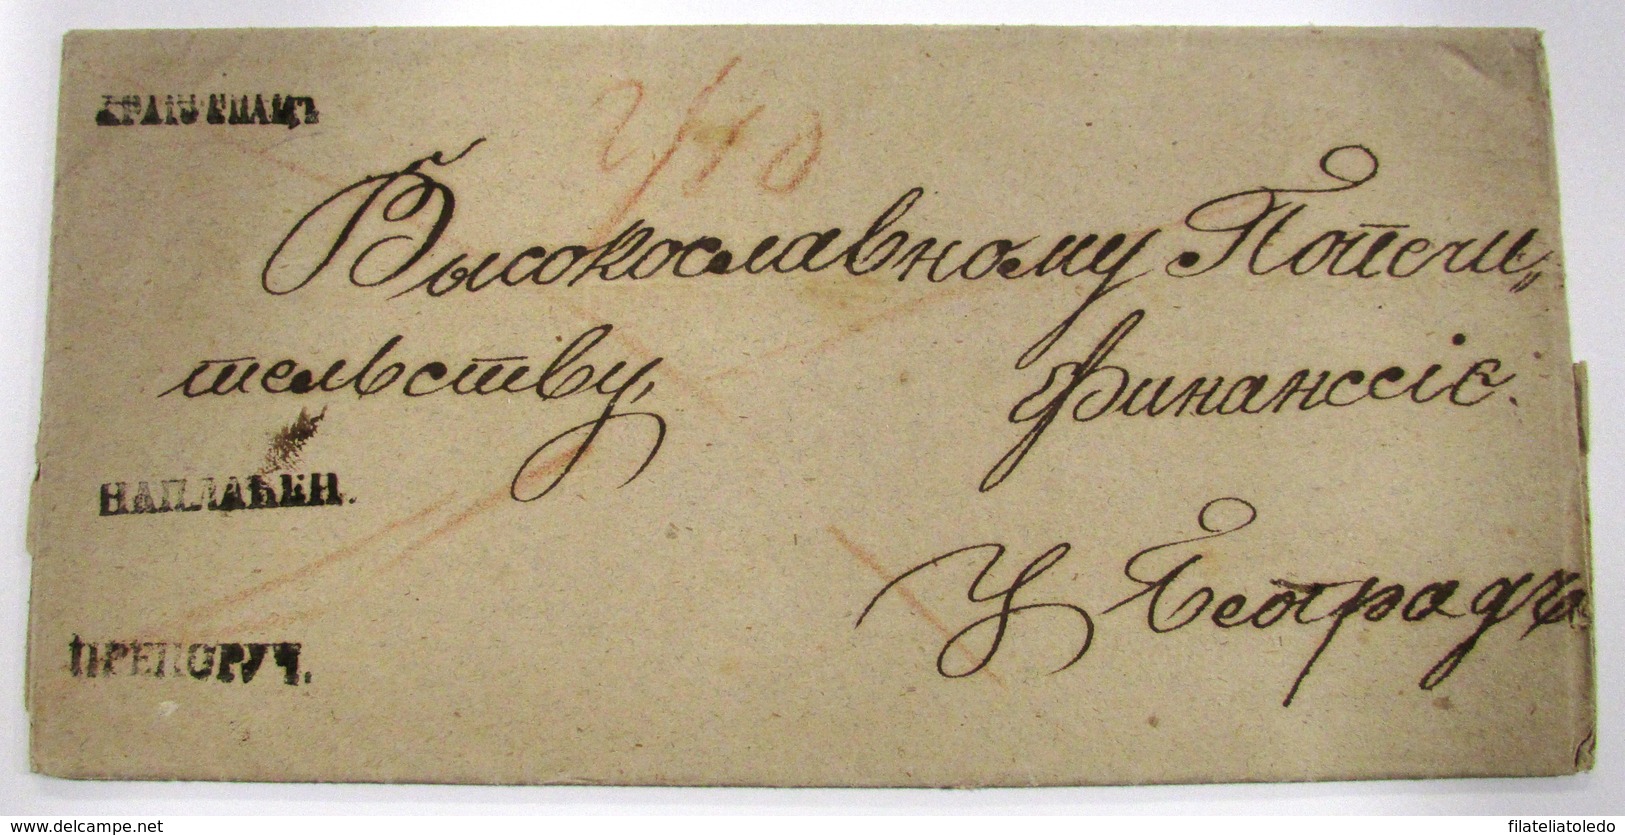 КРАГУЄВАЦЪ
2/10
Высокославному Попечи„
тельству,
Финанссіє.
НАПЛАЋЕН.
у Београдъ
ПРЕПОРУЧ.
www.delcampe.net
filateliatoledo